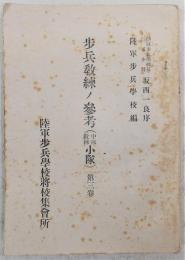 坂西一良序
陸軍歩兵學校編
歩兵教練ノ參考
(中隊教練
小隊)
第三卷
陸軍歩兵學校將校集會所